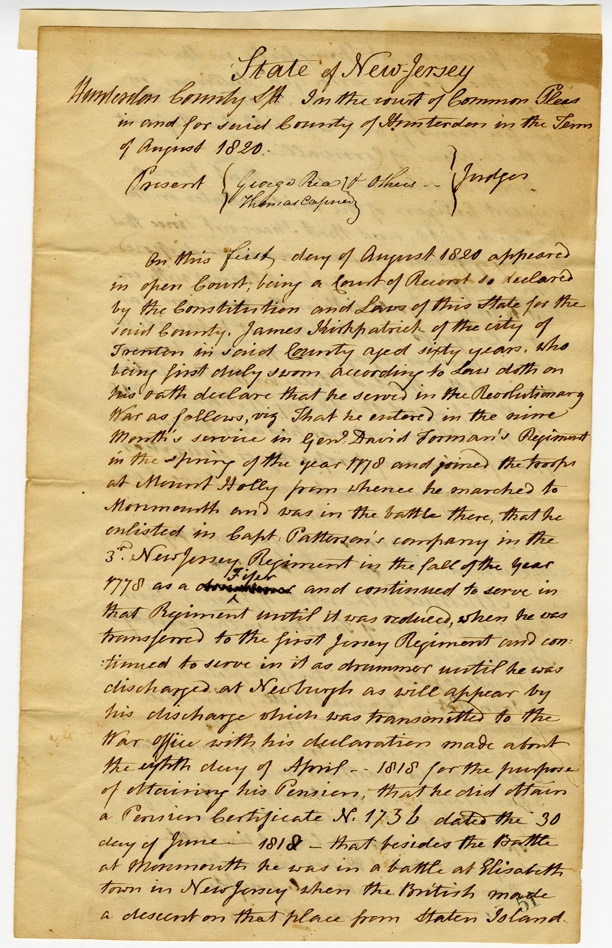 State of New-Jersey
Hunterdon County Sst. In the court of Common Pleas
in and for said County of Hunterdon in the Term
of August 1820.
Present { George Rea & Others -- } Judges
Thomas Capner
On this first day of August 1820 appeared
in open Court, being a Court of Record so declared
by the Constitution and Laws of this State for the
said County. James Kirkpatrick of the city of
Trenton in said County aged sixty years, who
being first duly sworn according to Law doth on
his oath declare that he served in the Revolutionary
War as follows, viz. That he entered in the nine
Month's service in Genl. David Forman's Regiment
in the spring of the year 1778 and joined the troops
at Mount Holly from whence he marched to
Monmouth and was in the battle there, that he
enlisted in Capt. Patterson's company in the
3rd. New Jersey Regiment in the fall of the year
Fifer
1778 as a and continued to serve in
that Regiment until it was reduced, when he was
transferred to the first Jersey Regiment and con-
:tinued to serve in it as drummer until he was
discharged at Newburgh as will appear by
his discharge which was transmitted to the
War office with his declaration made about
the eighth day of April -- 1818 for the purpose
of obtaining his Pension, that he did obtain
a Pension Certificate N. 1736 dated the 30
day of June - 1818 - that besides the Battle
at Monmouth he was in a battle at Elisabeth
town in New Jersey when the British made
a descent on that place from Staten Island